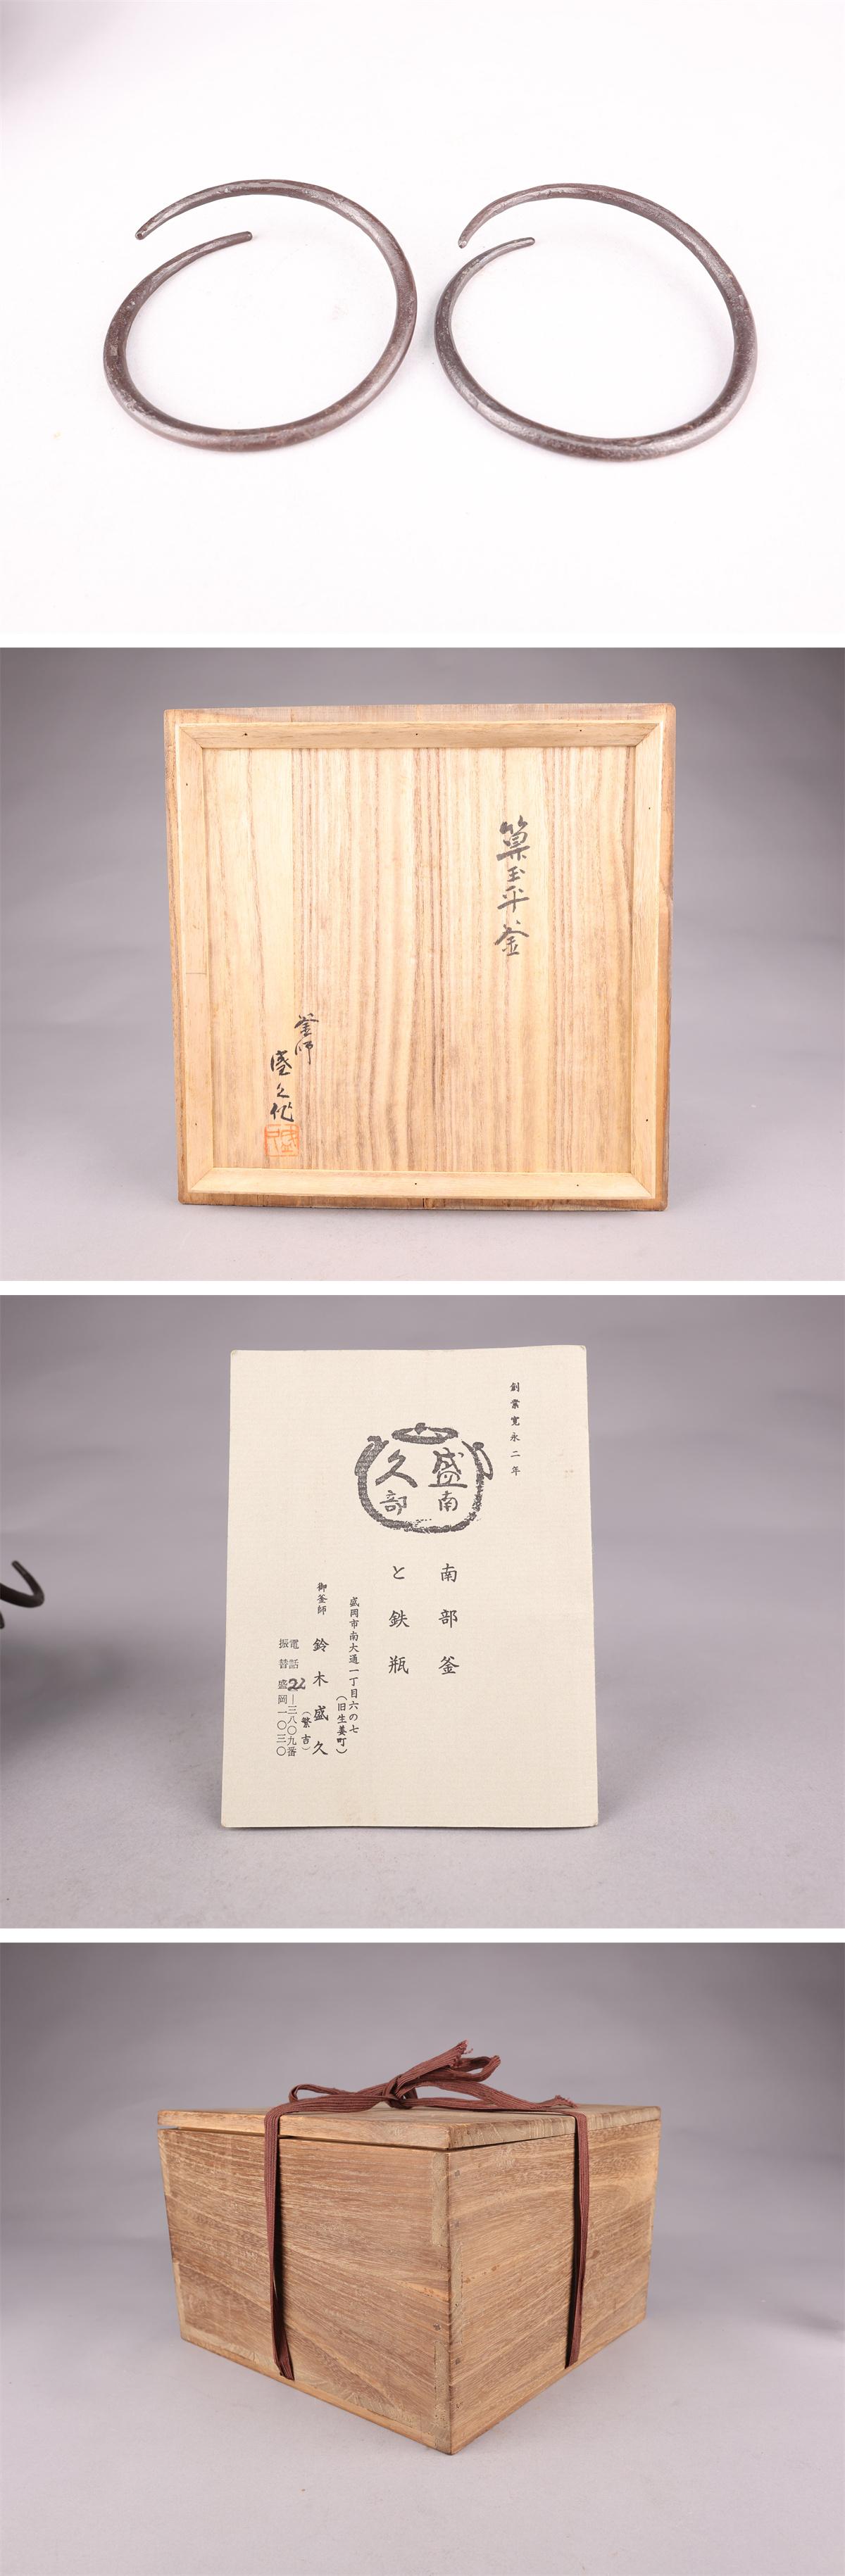 霰玉平釜
釜師
盛久作
創業寛永二年
盛久
南部
南部釜
と鉄瓶
盛岡市南大通一丁目六の七
(旧生姜町)
御釜師 鈴木盛久
(繁吉)
電話22―三八〇九番
振替盛岡一〇三〇